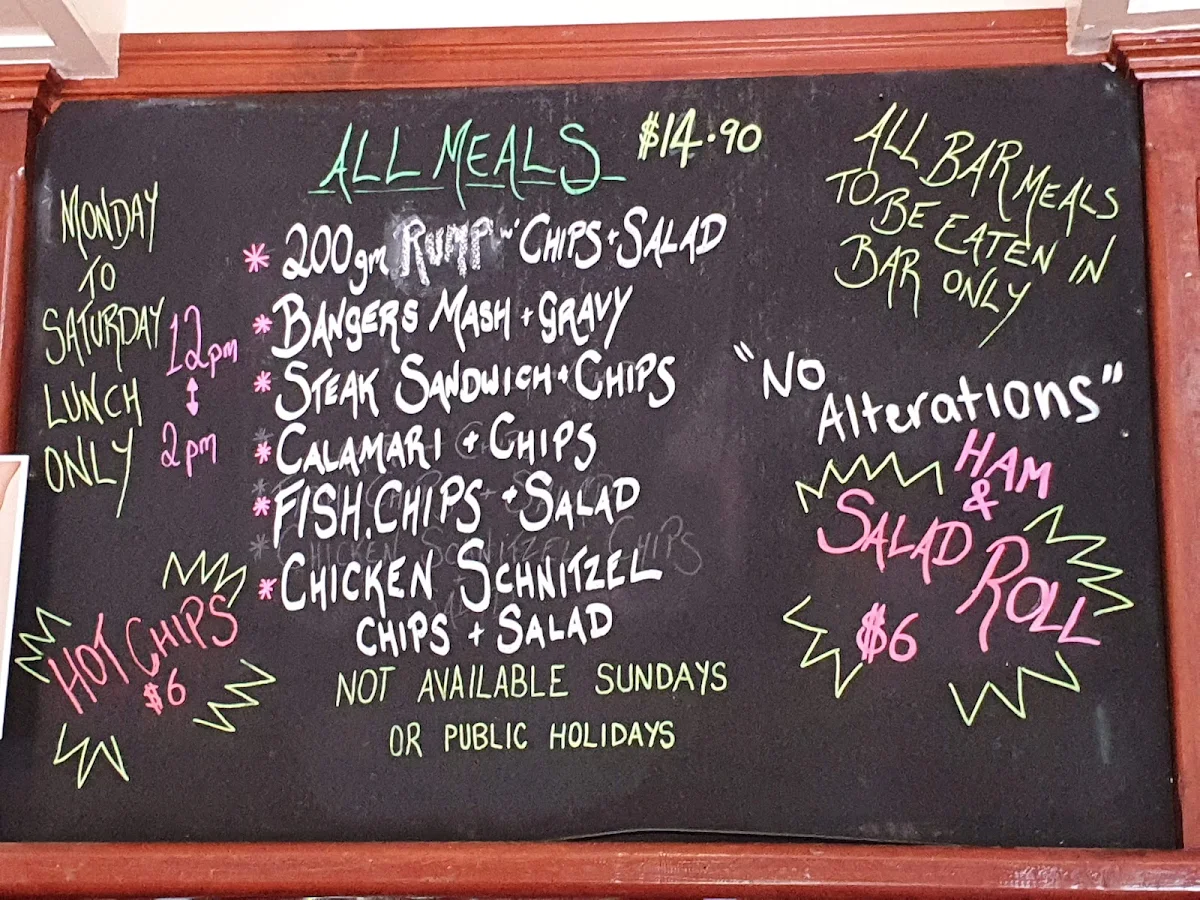 ALL MEALS $14.90
MONDAY
TO
SATURDAY
LUNCH
ONLY
12pm
2pm
* 200gm RUMP w' CHIPS + SALAD
* BANGERS MASH + GRAVY
* STEAK SANDWICH + CHIPS
* CALAMARI + CHIPS
* FISH. CHIPS + SALAD
* CHICKEN SCHNITZEL
CHIPS + SALAD
NOT AVAILABLE SUNDAYS
OR PUBLIC HOLIDAYS
HOT CHIPS
$6
ALL BAR MEALS
TO BE EATEN IN
BAR ONLY
"NO
Alterations"
HAM
&
SALAD
ROLL
$6